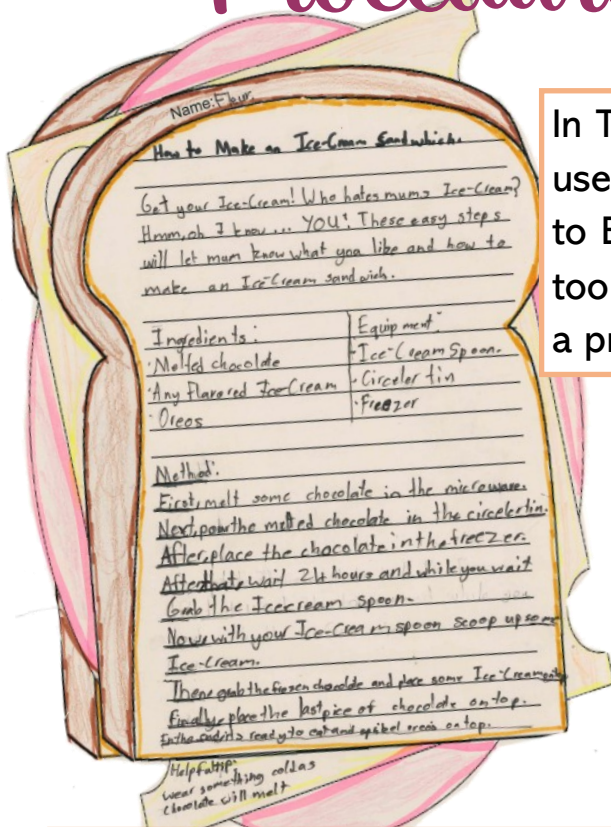 Procedur
Name: Fleur
How to Make an Ice-Cream Sandwhich.
Get your Ice-Cream! Who hates mums Ice-Cream?
Hmm, oh I know... YOU! These easy steps
will let mum know what you like and how to
make an Ice-Cream sandwich.
Ingredients:
·Melted chocolate
·Any flavored Ice-Cream
·Oreos
Equipment:
·Ice-Cream Spoon.
·Circeler tin
·Freezer
Method:
First, melt some chocolate in the microwave.
Next, pour the melted chocolate in the circelertin.
After, place the chocolate in the freezer.
After that, wait 24 hours and while you wait
Grab the Icecream spoon.
Now, with your Ice-Cream spoon scoop up some
Ice-Cream.
Then, grab the frozen chocolate and place some Ice-Cream
Finally, place the last pice of chocolate on top.
In the end it's ready to eat and oreos on top.
Helpful tip:
wear something cold as
chocolate will melt
In T
use
to E
too
a pr